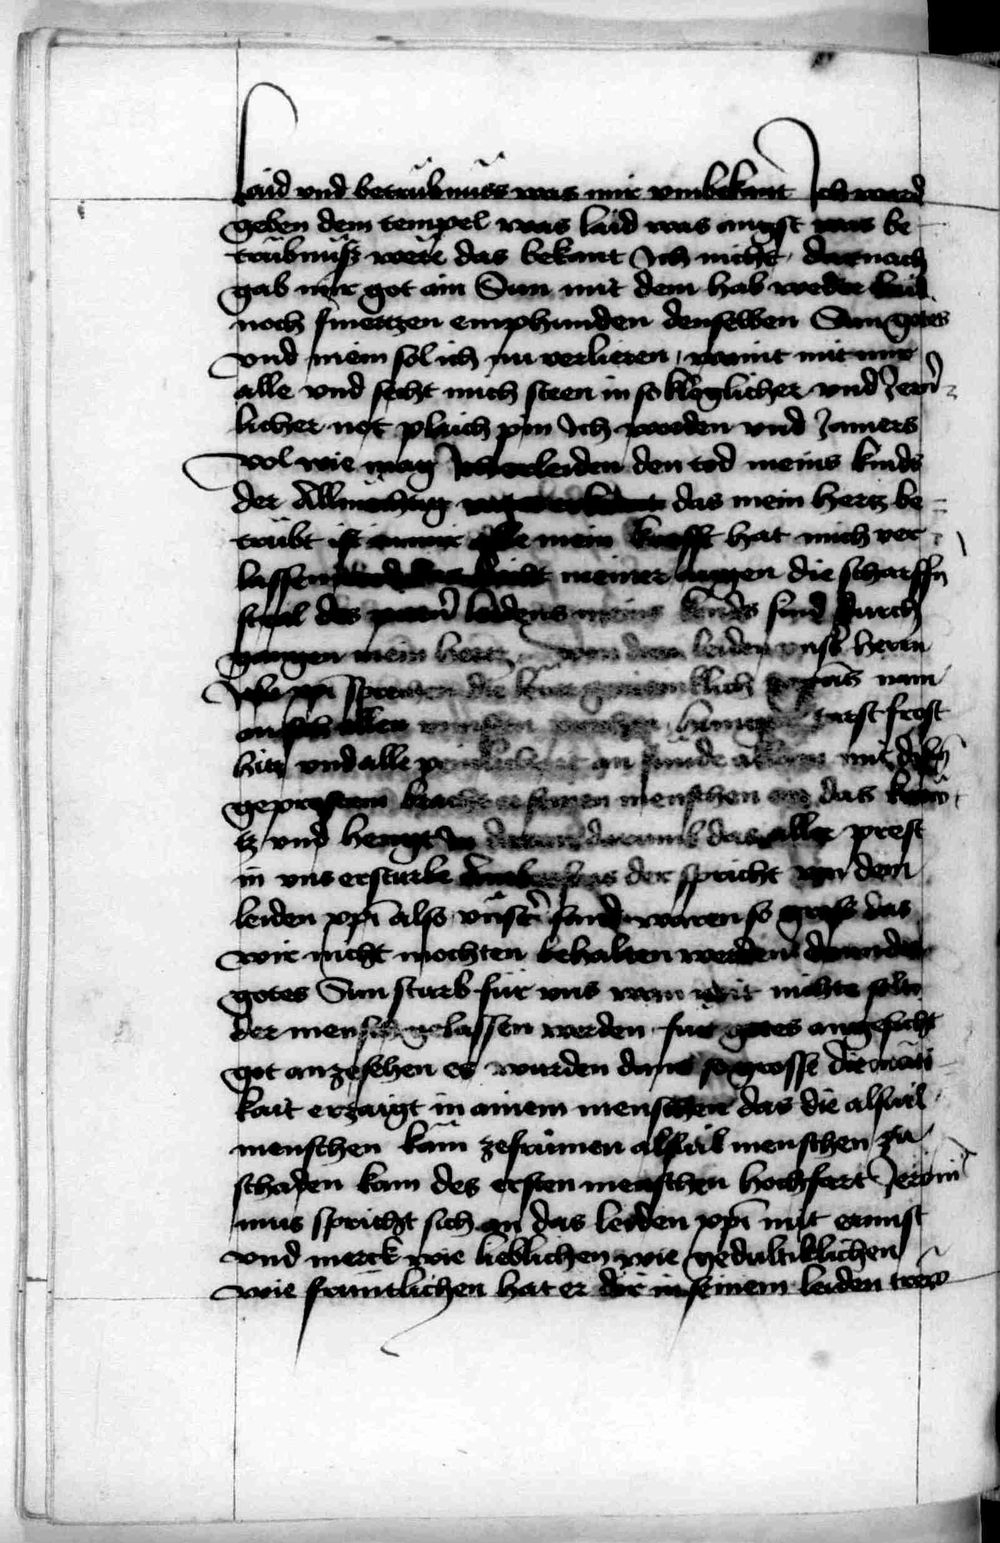 laid vnd betrübnüss was mir vmbekant Ich ward
geben dem tempel was laid was angst was be
trübnüß were das bekant Ich nicht darnach
gab mir got ain Sun mit dem hab weder laid
noch smertzen emphunden denselben Sun gotes
vnd mein sol ich nu verlieren waint mit mir
alle vnd secht mich steen in so kleglicher vnd
licher not plaich pin Ich worden vnd Jamers
vol wie mag Ich erleiden den tod meins kinds
der Allmächtig das mein hertz be
trübt ist alle mein krafft hat mich ver
lassen meiner augen die scharffn
stral des leidens meins kinds sind durch
gangen mein hertz von dem leiden vnsers herrn
xpi sprechen die nam
an sich allen hunger turst frost
hitz vnd alle an sünde mit
geprosten seinen menschen an das
tz vnd hengt darumb das aller prest
in vns ersturbe der spricht von dem
leiden xpi also vnser sund waren so gross das
wir nicht mochten behalten werden dann das
gotes Sun sturb für vns wan nicht
der mensch gelassen werden für gotes angesicht
got anzesehen es wurden dann so grosse
kait erzaigt in ainem menschen das die alsuil
menschen käm zefrumen alsuil menschen zu
schaden kam des ersten menschen hochfart Jeroni
mus spricht sich an das leiden xpi mit ernnst
vnd merck wie lieblichen wie gedultiklichen
wie früntlichen hat er dir in seinem leiden trew